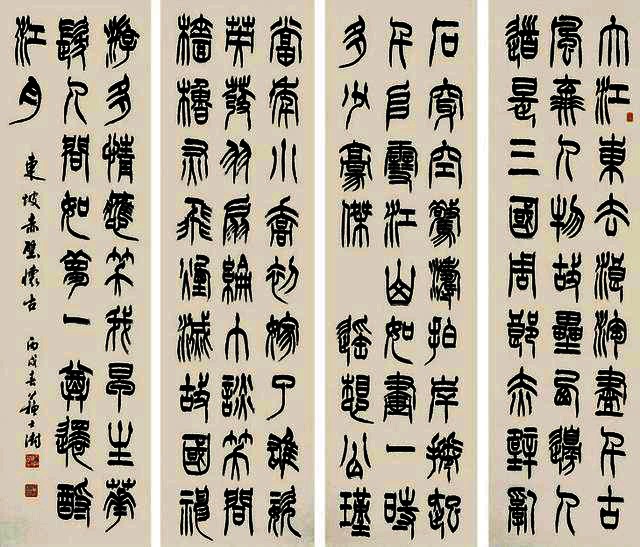 大江東去浪淘盡千古
風流人物故壘西邊人
道是三國周郎赤壁亂
石穿空驚濤拍岸捲起
千堆雪江山如畫一時
多少豪傑 遙想公瑾
當年小喬初嫁了雄姿
英發羽扇綸巾談笑間
檣櫓灰飛煙滅故國神
游多情應笑我早生華
髮人間如夢一尊還酹
江月
東坡赤壁懷古 丙戌春蘇士澍